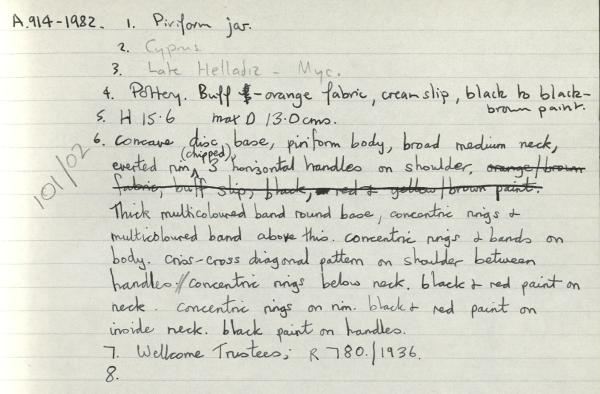 A.914-1982. 1. Piriform jar.
2. Cyprus
3. Late Helladic - Myc.
4. Pottery. Buff - orange fabric, cream slip, black to black-
brown paint.
5. H 15.6 max D 13.0cms.
6. Concave disc base, piriform body, broad medium neck,
(chipped)
everted rim, 3 horizontal handles on shoulder. orange/brown
fabric, buff slip, black, red & yellow/brown paint.
101/02
Thick multicoloured band round base, concentric rings &
multicoloured band above this. concentric rings & bands on
body. Criss-cross diagonal pattern on shoulder between
handles. // concentric rings below neck. black & red paint on
neck. concentric rings on rim. black & red paint on
inside neck. black paint on handles.
7. Wellcome Trustees; R 780./1936.
8.